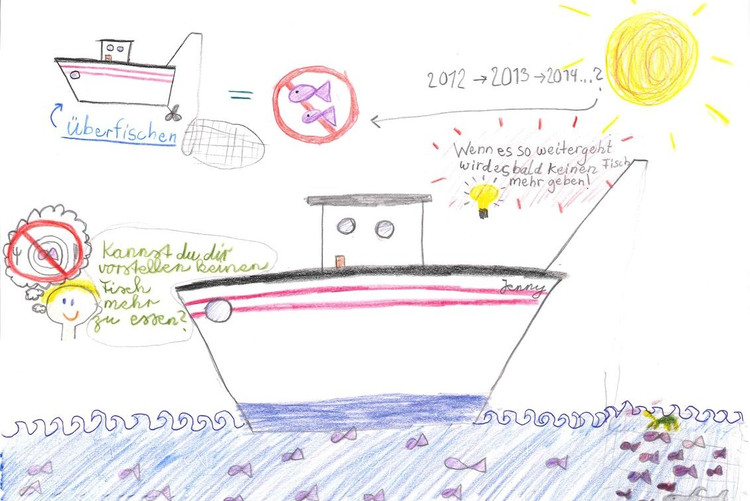 Überfischen
=
2012 → 2013 → 2014...?
Wenn es so weitergeht
wird es bald keinen Fisch
mehr geben!
Kannst du dir
vorstellen keinen
Fisch
mehr
zu essen?
Jenny